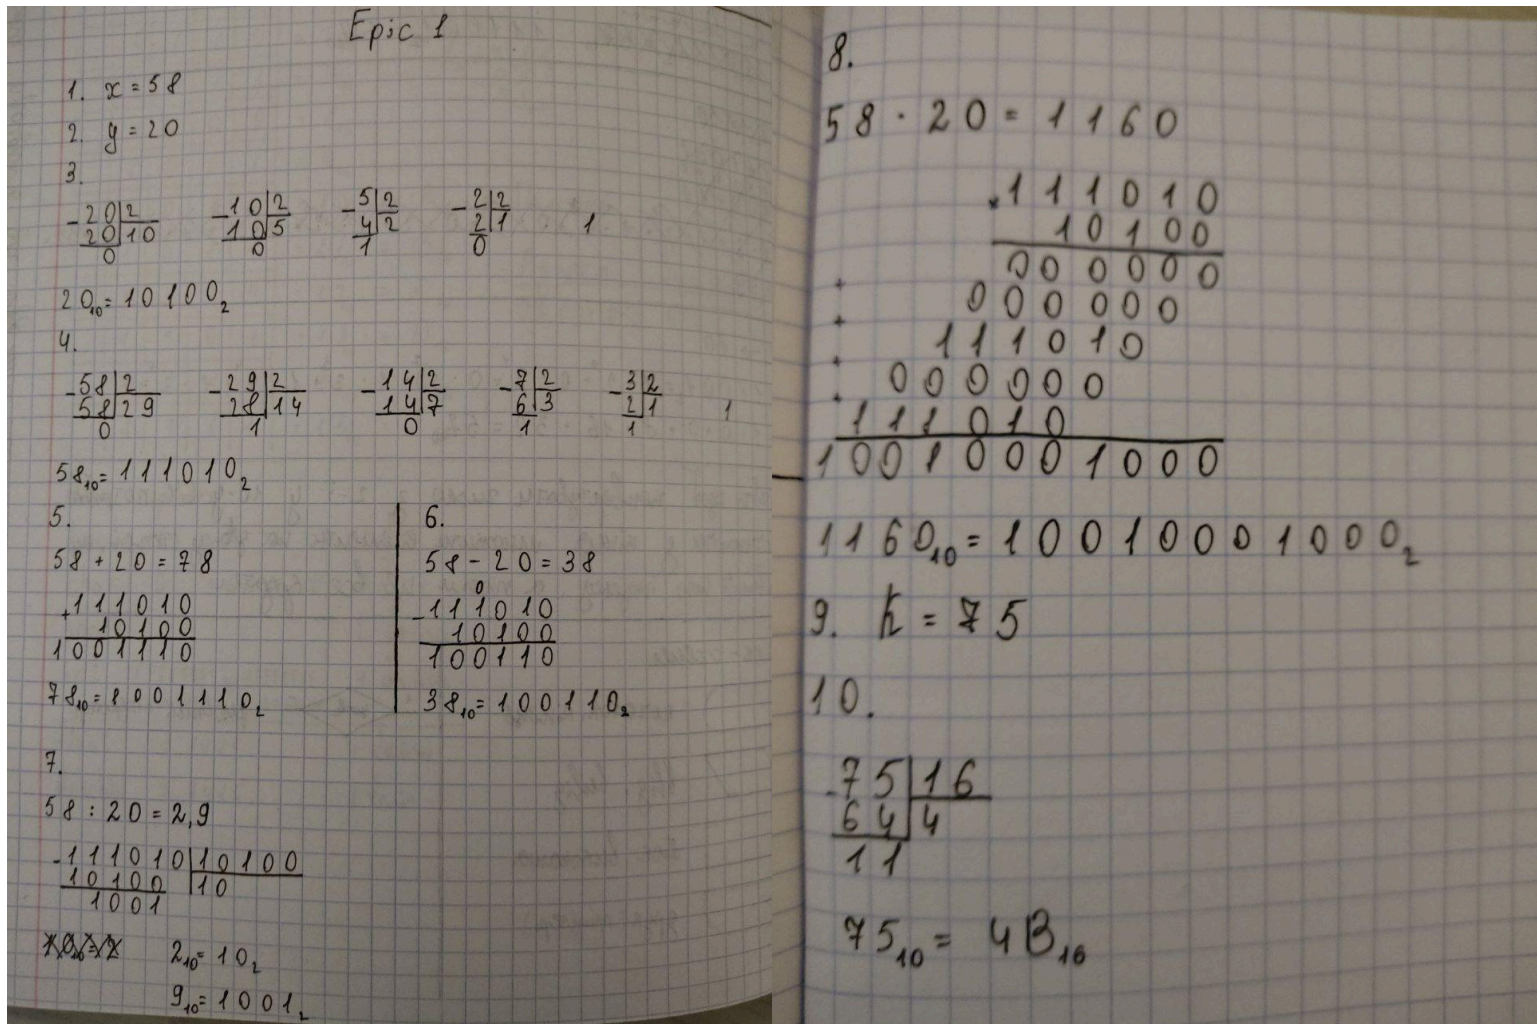 Epic 1
1. x = 58
2. y = 20
3.
-20|2 -10|2 -5|2 -2|2
20|10 10|5 4|2 2|1 1
0 0 1 0
20₁₀ = 10100₂
4.
-58|2 -29|2 -14|2 -7|2 -3|2
58|29 28|14 14|7 6|3 2|1 1
0 1 0 1 1
58₁₀ = 111010₂
5.
58 + 20 = 78
+111010
10100
1001110
78₁₀ = 1001110₂
6.
58 - 20 = 38
0
-111010
10100
100110
38₁₀ = 100110₂
7.
58 : 20 = 2,9
-111010|10100
10100|10
1001
2₁₀ = 10₂
9₁₀ = 1001₂
8.
58 · 20 = 1160
×111010
10100
000000
+
000000
+
111010
+
000000
+
111010
10010001000
1160₁₀ = 10010001000₂
9. K = 75
10.
-75|16
64|4
11
75₁₀ = 4B₁₆